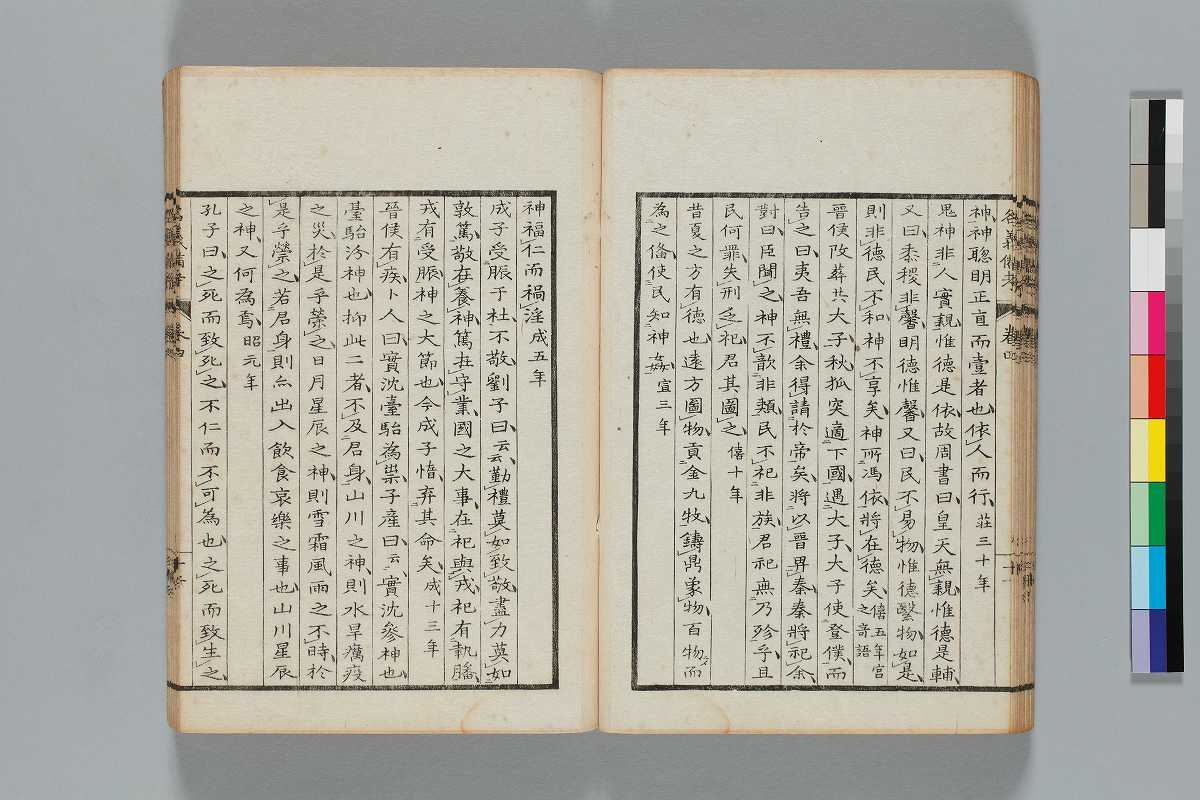 神神聰明正直而壹者也依人而行莊三十年
鬼神非人實親惟德是依故周書曰皇天無親惟德是輔
又曰黍稷非馨明德惟馨又曰民不易物惟德繄物如是
則非德民不和神不享矣神所馮依將在德矣僖五年宮之奇語
晉侯改葬共大子秋狐突適下國遇大子大子使登僕而
告之曰夷吾無禮余得請於帝矣將以晉畀秦秦將祀余
對曰臣聞之神不歆非類民不祀非族君祀無乃殄乎且
民何罪失刑乏祀君其圖之僖十年
昔夏之方有德也遠方圖物貢金九牧鑄鼎象物百物而
為之備使民知神姦宣三年
神福仁而禍淫成五年
成子受脤于社不敬劉子曰云云勤禮莫如致敬盡力莫如
敦篤敬在養神篤在守業國之大事在祀與戎祀有執膰
戎有受脤神之大節也今成子惰弃其命矣成十三年
晉侯有疾卜人曰實沈臺駘為祟子產曰云云實沈參神也
臺駘汾神也抑此二者不及君身山川之神則水旱癘疫
之災於是乎禜之日月星辰之神則雪霜風雨之不時於
是乎禜之若君身則亦出入飲食哀樂之事也山川星辰
之神又何為焉昭元年
孔子曰之死而致死之不仁而不可為也之死而致生之